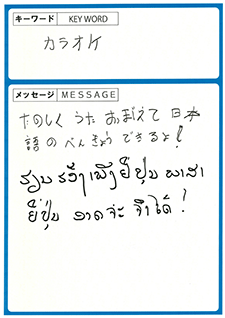 キーワード KEY WORD
カラオケ
メッセージ MESSAGE
たのしく うた おぼえて 日本
語 の べんきょう できるよ!
ຮຽນ ຮ້ອງ ເພງ ຍີ່ປຸ່ນ ພາສາ
ຍີ່ປຸ່ນ ອາດຈະ ຈື່ໄດ້!